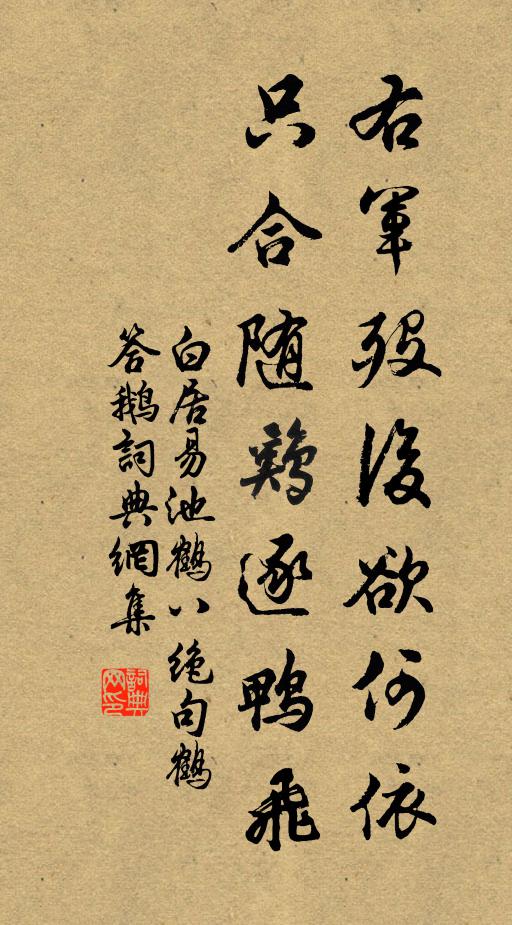 右軍歿後欲何依
只合随鷄逐鴨飛
白居易池鶴八絶句鶴
答鵝詞典網集
詞典网印